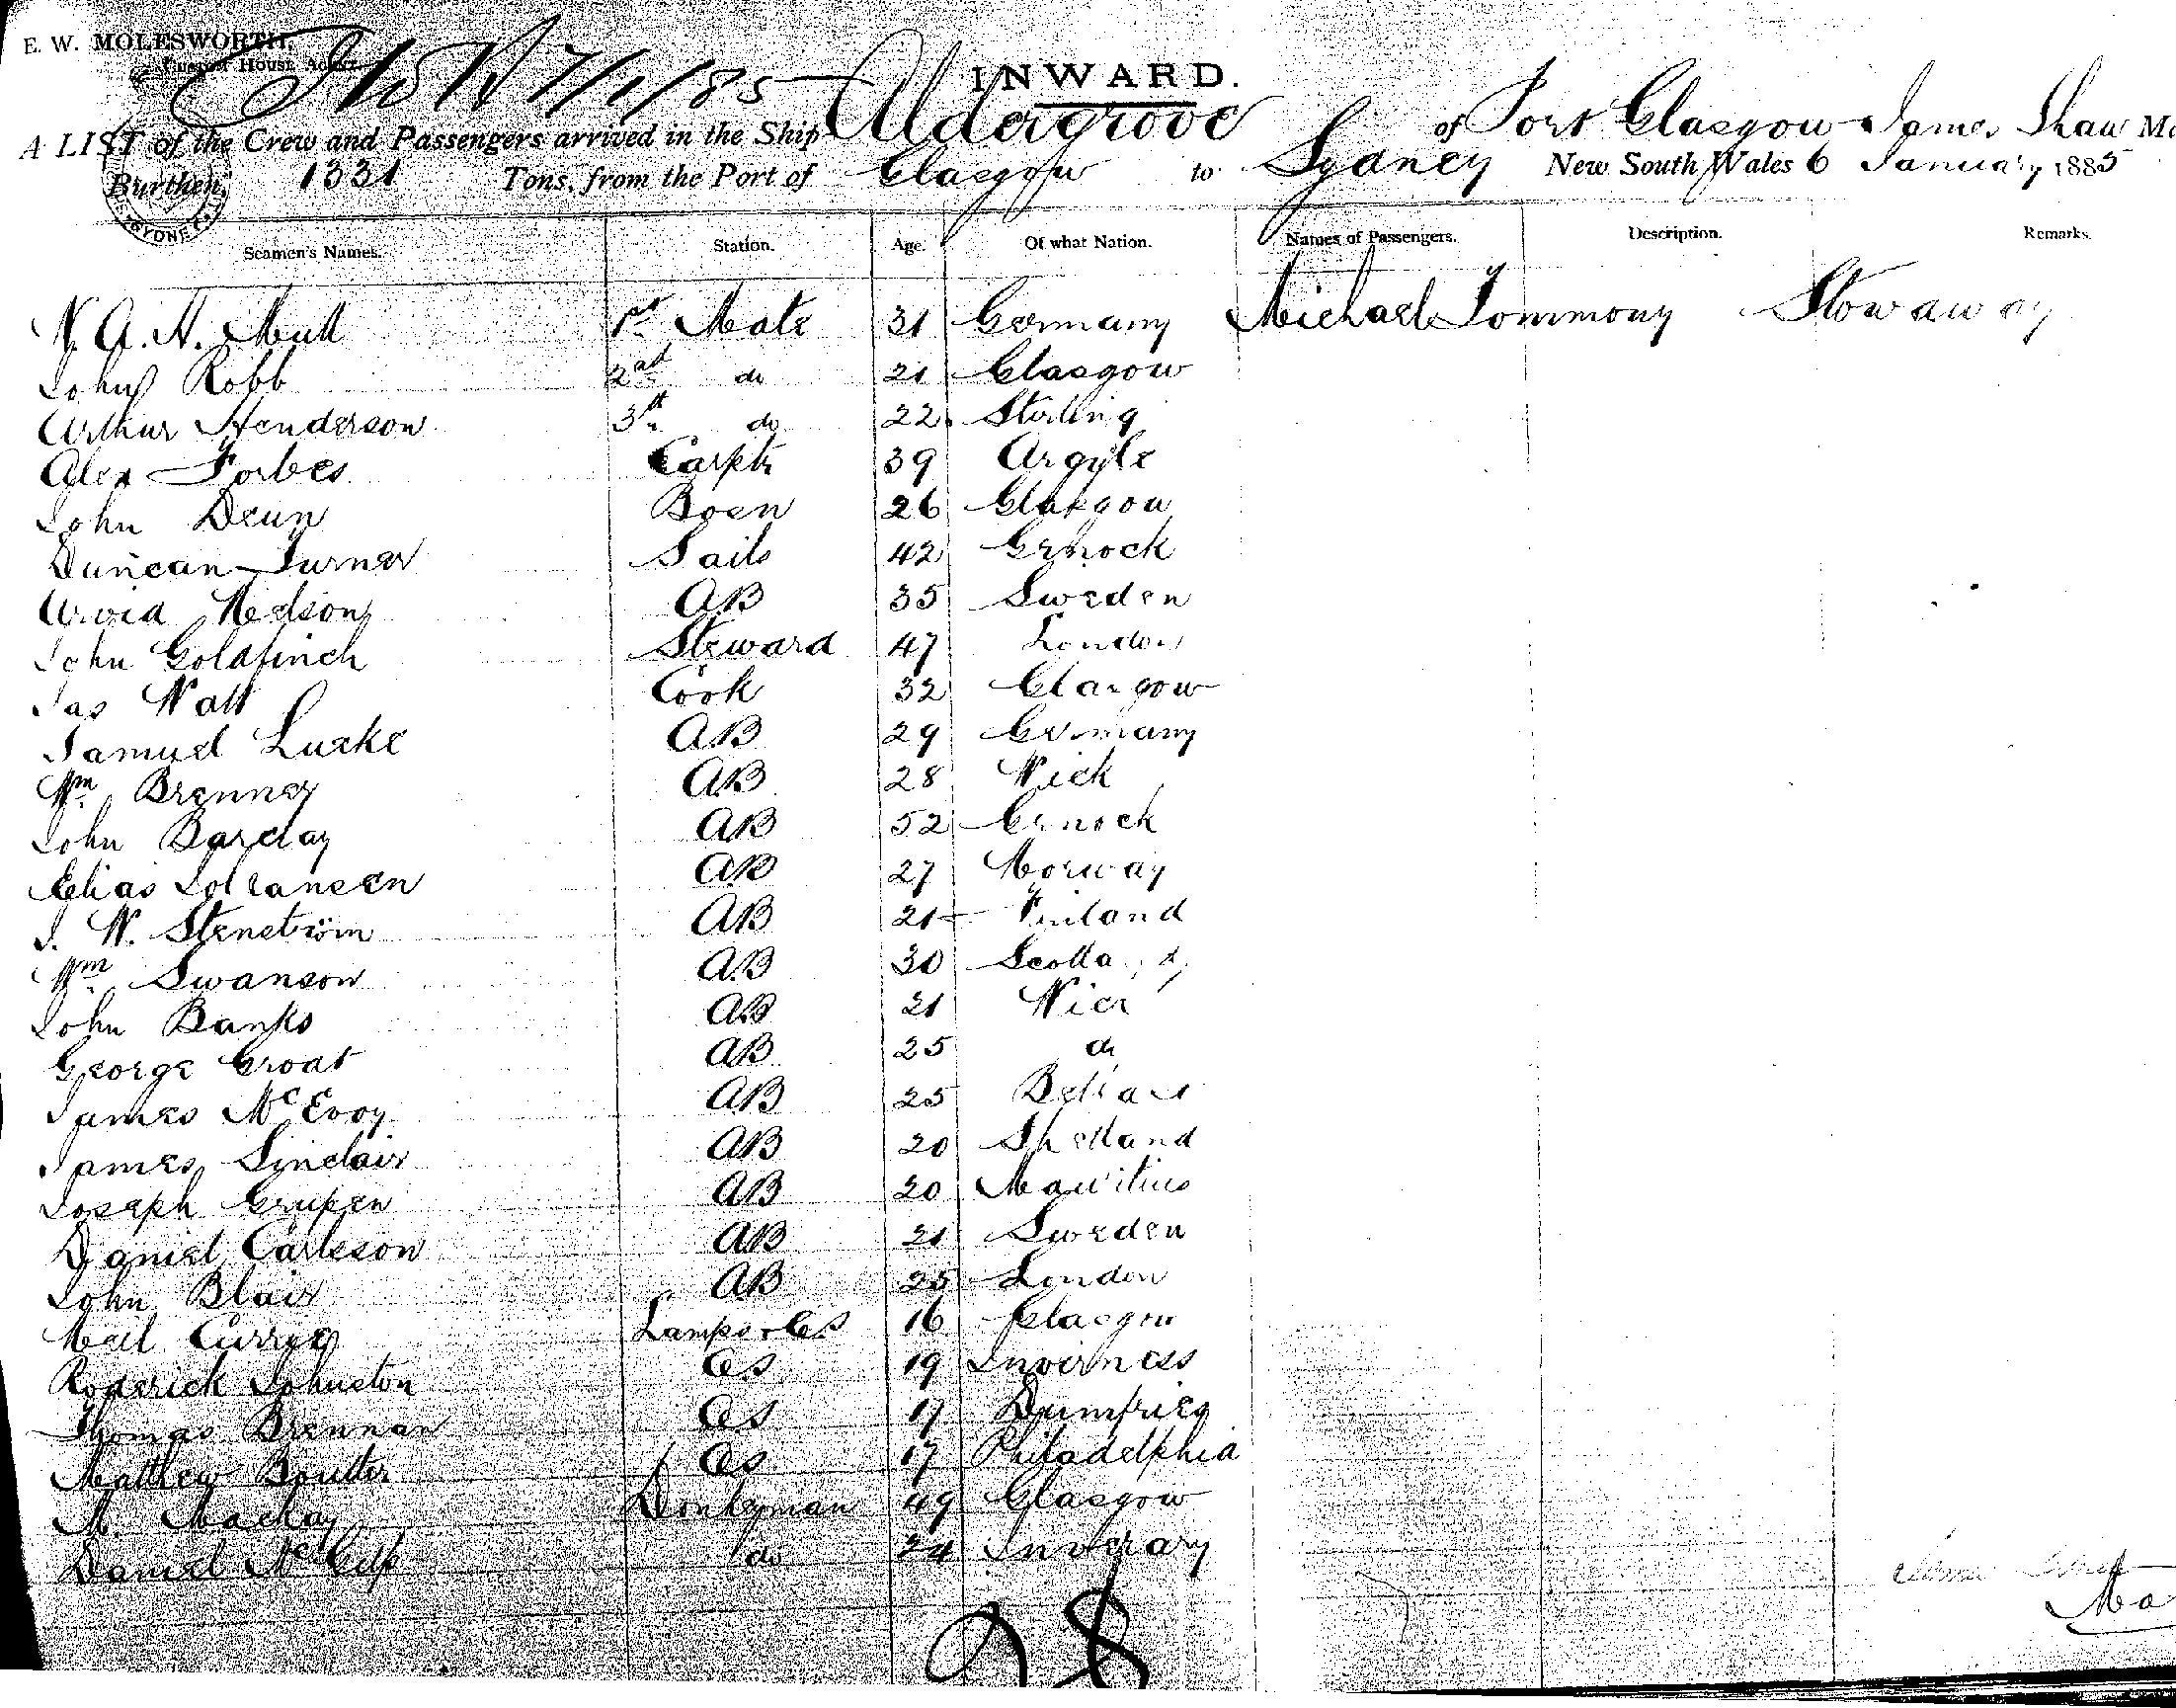 E. W. MOLESWORTH,
Custom House Agent.
7/1/85
INWARD.
A LIST of the Crew and Passengers arrived in the Ship Aldergrove of Port Glasgow James Shaw
Burthen, 1331 Tons, from the Port of Glasgow to Sydney New South Wales 6 January 1885
SYDNEY
Seamen's Names. Station. Age. Of what Nation. Names of Passengers. Description. Remarks.
N. A. H. Mull 1st Mate 31 Germany Michael Tommony Stowaway
John Robb 2nd do 21 Glasgow
Arthur Henderson 3th do 22 Stirling
Alex Forbes Carptr 39 Argyle
John Deun Bosn 26 Glasgow
Duncan Turner Sails 42 Grnock
Arvid Nedson AB 35 Sweden
John Goldfinch Steward 47 London
Jas Watt Cook 32 Glasgow
Samuel Lueke AB 29 Germany
Wm Bremner AB 28 Wick
John Barclay AB 52 Grnock
Elias AB 27 Norway
J. W. Stenström AB 21 Finland
Wm Swanson AB 30 Scotland
John Banks AB 21 Wick
George Groat AB 25 do
James McEvoy AB 25 Belfast
James Sinclair AB 20 Shetland
Joseph Grupen AB 20 Mauritius
Daniel Carlsson AB 21 Sweden
John Blair AB 25 London
Neil Currie Lamps & OS 16 Glasgow
Roderick Johnston OS 19 Inverness
Thomas Brennan OS 19 Dumfries
Matthew Boulter OS 17 Philadelphia
M. Mackay Donkeyman 49 Glasgow
Daniel McCulp do 24 Inverary
28